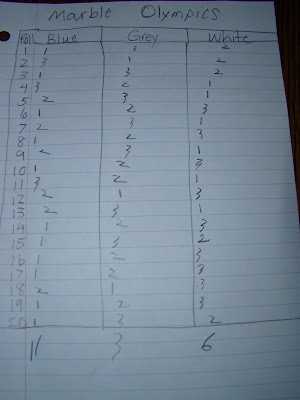 Marble Olympics
Roll Blue Grey White
1 1 3 2
2 3 1 2
3 1 3 2
4 3 2 1
5 2 3 1
6 1 2 3
7 2 3 1
8 1 2 3
9 2 3 1
10 1 2 3
11 3 2 1
12 2 1 3
13 2 3 1
14 1 2 3
15 1 3 2
16 1 2 3
17 1 2 3
18 2 1 3
19 1 2 3
20 1 3 2
11 3 6